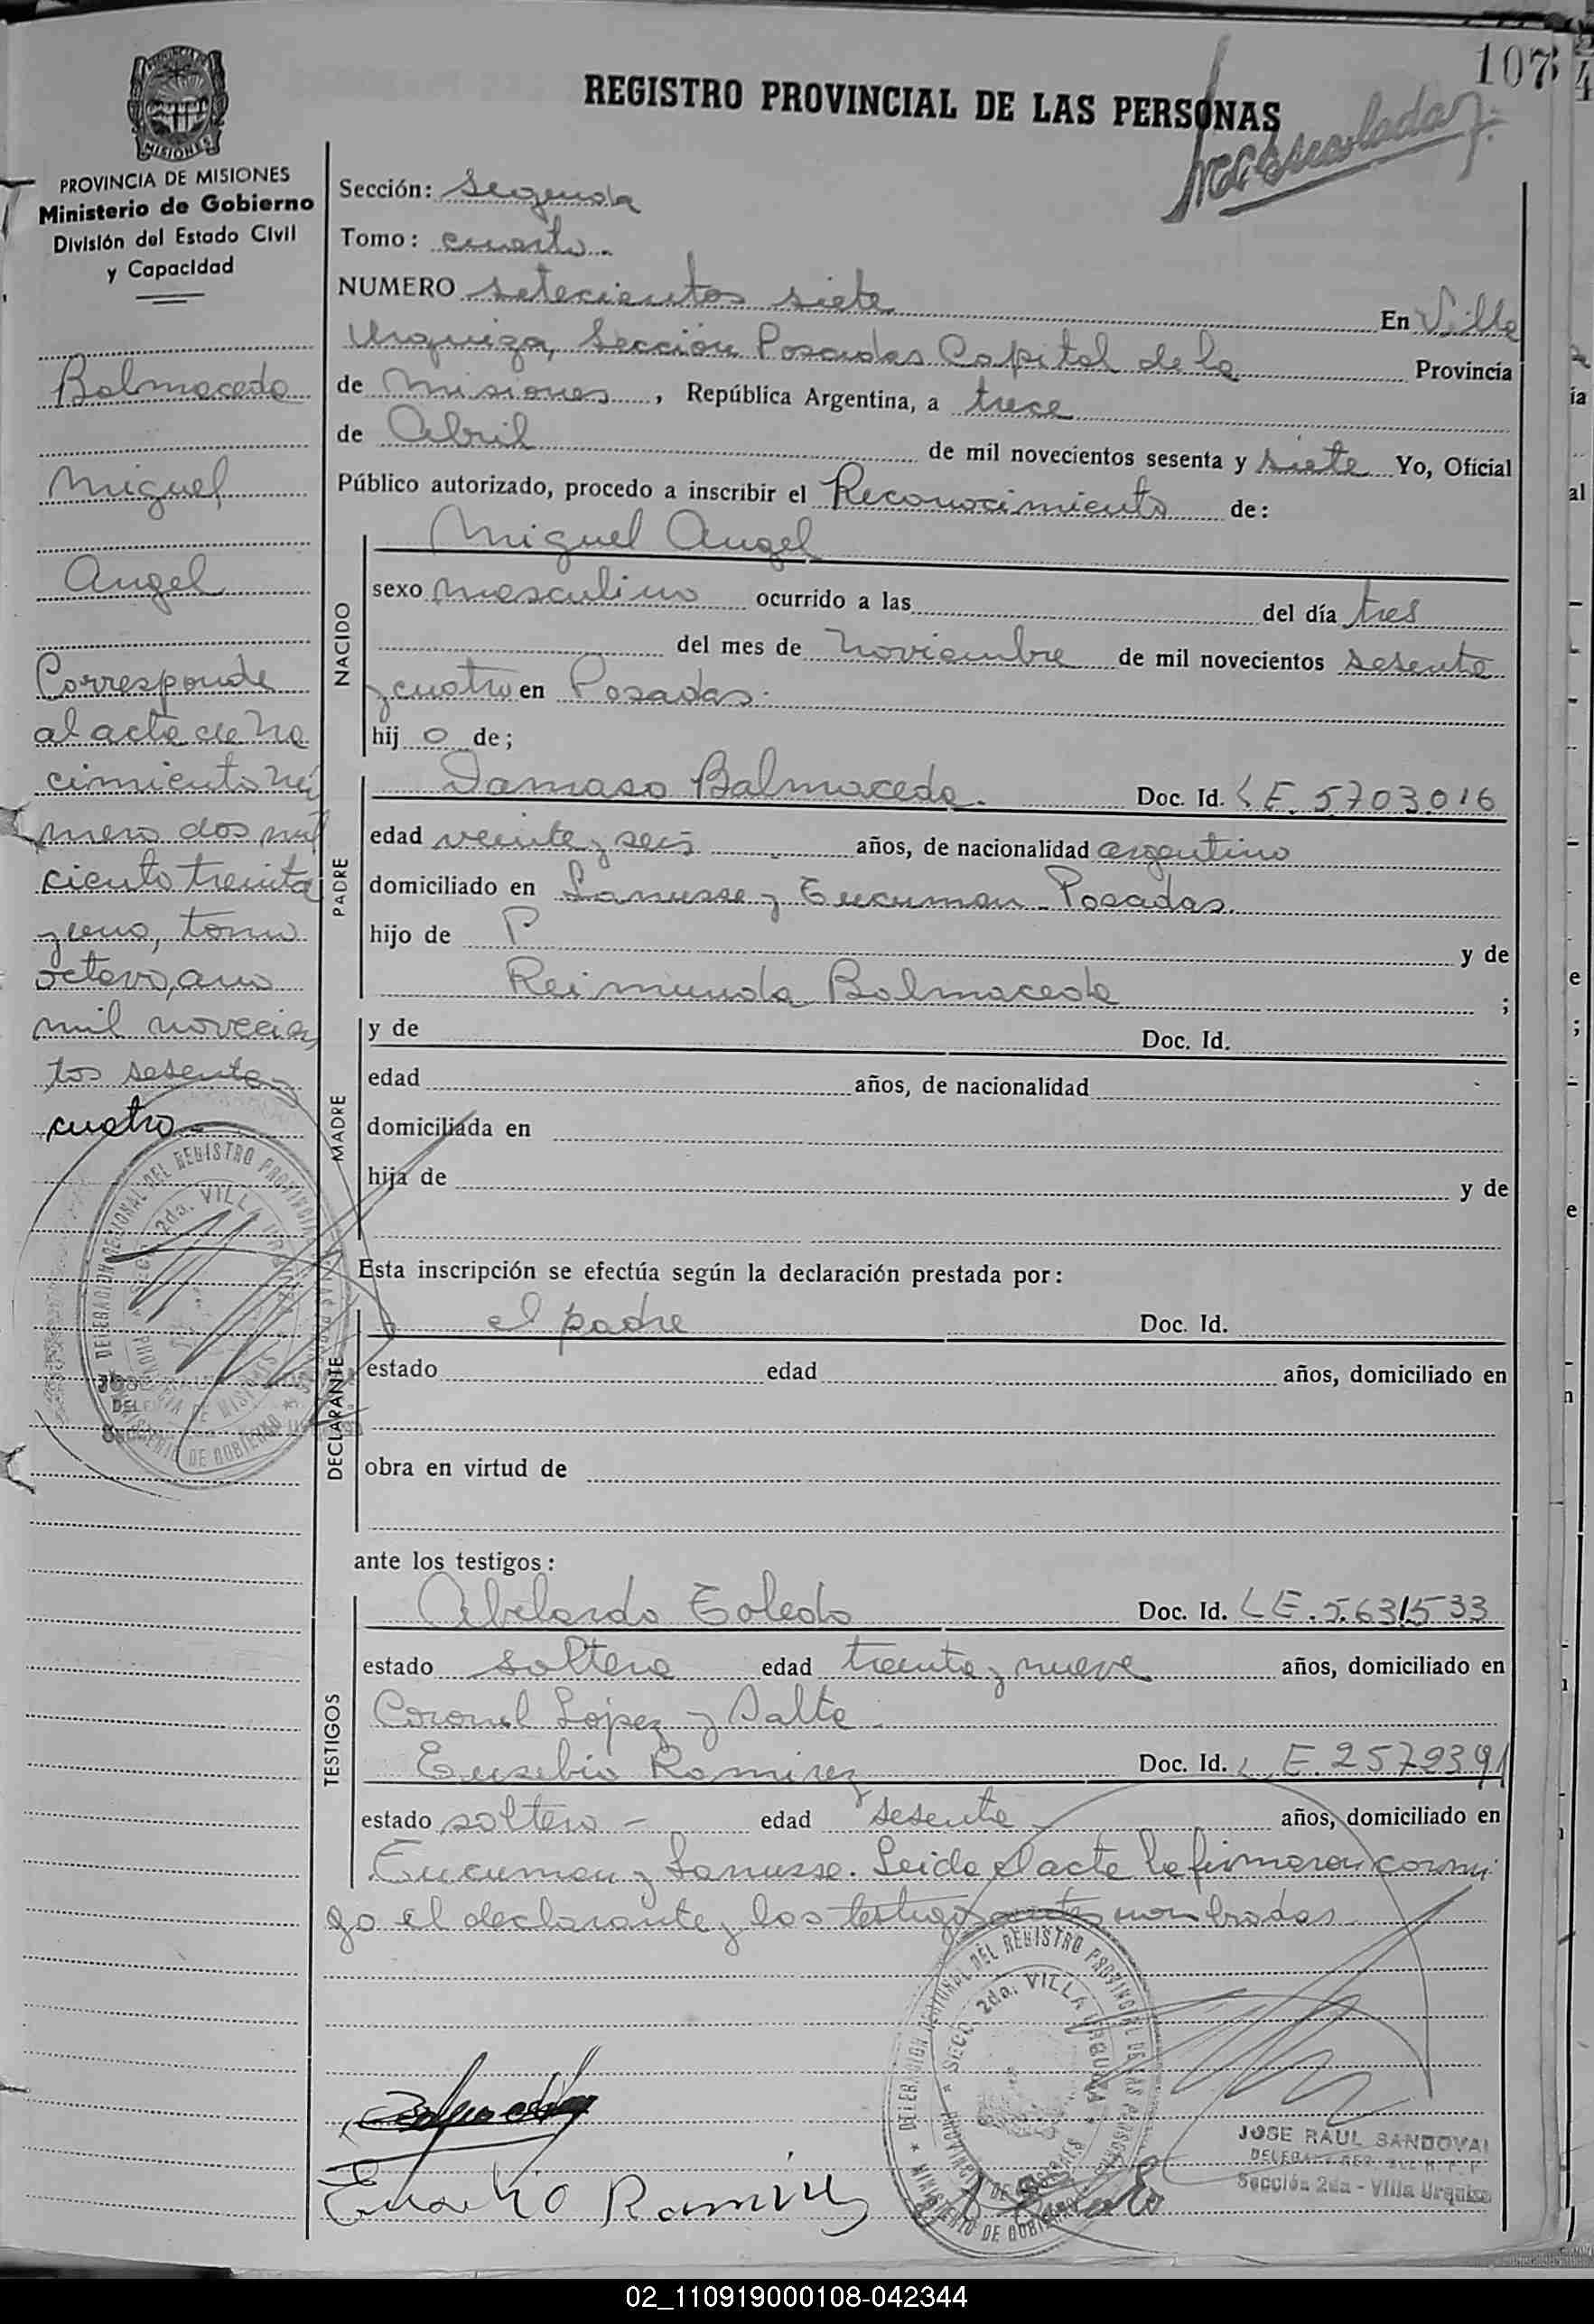 107
REGISTRO PROVINCIAL DE LAS PERSONAS
PROVINCIA DE MISIONES
Ministerio de Gobierno
División del Estado Civil
y Capacidad
Balmaceda
Miguel
Angel
Corresponde
al acta de na
cimiento nú
mero dos mil
ciento treinta
y uno, tomo
octavo, año
mil novecien
tos sesenta y
cuatro
Sección: Segunda
Tomo: cuarto
NUMERO setecientos siete En Villa
Urquiza, Sección Posadas Capital de la Provincia
de Misiones, República Argentina, a trece
de Abril de mil novecientos sesenta y siete Yo, Oficial
Público autorizado, procedo a inscribir el Reconocimiento de:
NACIDO
Miguel Angel
sexo masculino ocurrido a las del día tres
del mes de Noviembre de mil novecientos sesenta
y cuatro en Posadas.
hijo de;
PADRE
Damaso Balmaceda. Doc. Id. LE. 5703016
edad veinte y seis años, de nacionalidad argentino
domiciliado en Lanusse y Tucuman - Posadas
hijo de P y de
Reimunda Balmaceda ;
MADRE
y de Doc. Id.
edad años, de nacionalidad
domiciliada en
hija de y de
Esta inscripción se efectúa según la declaración prestada por:
DECLARANTE
el padre Doc. Id.
estado edad años, domiciliado en
obra en virtud de
ante los testigos:
TESTIGOS
Abelardo Toledo Doc. Id. LE. 5.631533
estado soltero edad treinta y nueve años, domiciliado en
Coronel López y Salta
Eusebio Ramirez Doc. Id. LE. 2579391
estado soltero - edad sesenta años, domiciliado en
Tucuman y Lanusse. Leida el acta la firmaron conmi
go el declarante y los testigos antes nombrados
DELEGACION REGIONAL DEL REGISTRO PROVINCIAL DE LAS PERSONAS
SECC. 2da. VILLA URQUIZA
PROVINCIA DE MISIONES
MINISTERIO DE GOBIERNO
JOSE RAUL SANDOVAL
Sección 2da - Villa Urquiza
Ramirez
02_110919000108-042344